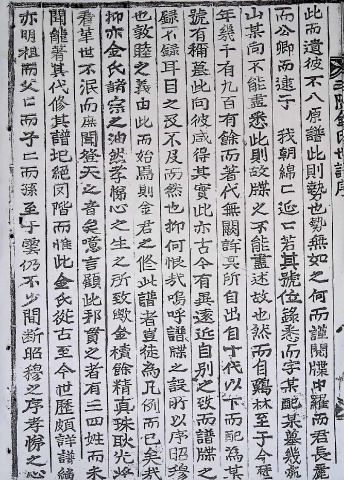 此而遺彼不入原譜此則勢也勢無如之何而謹閱牒中羅而君長麗
而公卿而逮于 我朝綿綿近近若其號位錄悉而字某配某墓幾
山某向不能盡悉此則故牒之不能盡述故也然而自鷄林至于今
年幾千有九百有餘而著代無闕詳其所自出自十代以下而配爲某
號有稱墓此向彼咸得其實此亦古今有異遠近自別之致而譜牒之
錄不錄耳目之及不及而然也抑何恨哉嗚呼譜牒之設所以序昭穆
也敦睦之義由此而始焉則金君之修此譜者豈徒為凡例而已矣哉
抑亦金氏諸宗之油然孝悌心之生之所致歟金櫝餘精真珠耿光
看革世不泯而聞登天之者矣噫言顧此邦貫之者有三四姓而未
聞能著其代修其譜圮絕閥階而惟此金氏從古至今世歷頗詳譜編
亦明祖而父父而子子而孫至于雲仍不少間断昭穆之序孝悌之心